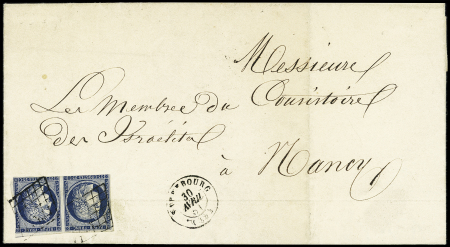 Messieurs
Les Membres du Consistoire
des Israélites
à Nancy
30
AVRIL
51